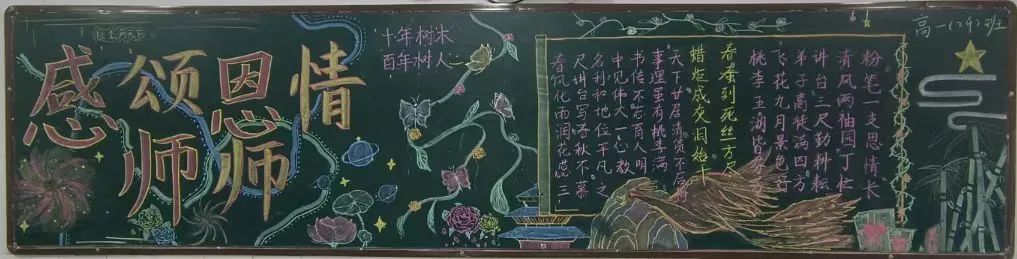 感颂恩情
师师
十年树木
百年树人
高一(29)班
粉笔一支思情长
清风两袖园丁忙
讲台三尺勤耕耘
弟子高徒满四方
飞花九月景色香
桃李五湖皆
春蚕到死丝方尽
蜡炬成灰泪始干
天下甘居清贫不后悔
事理虽有桃李满
书传不忘育人明
中见伟大一心教
名利和地位平凡之
尺讲台写春秋不慕
春风化雨润花蕊三